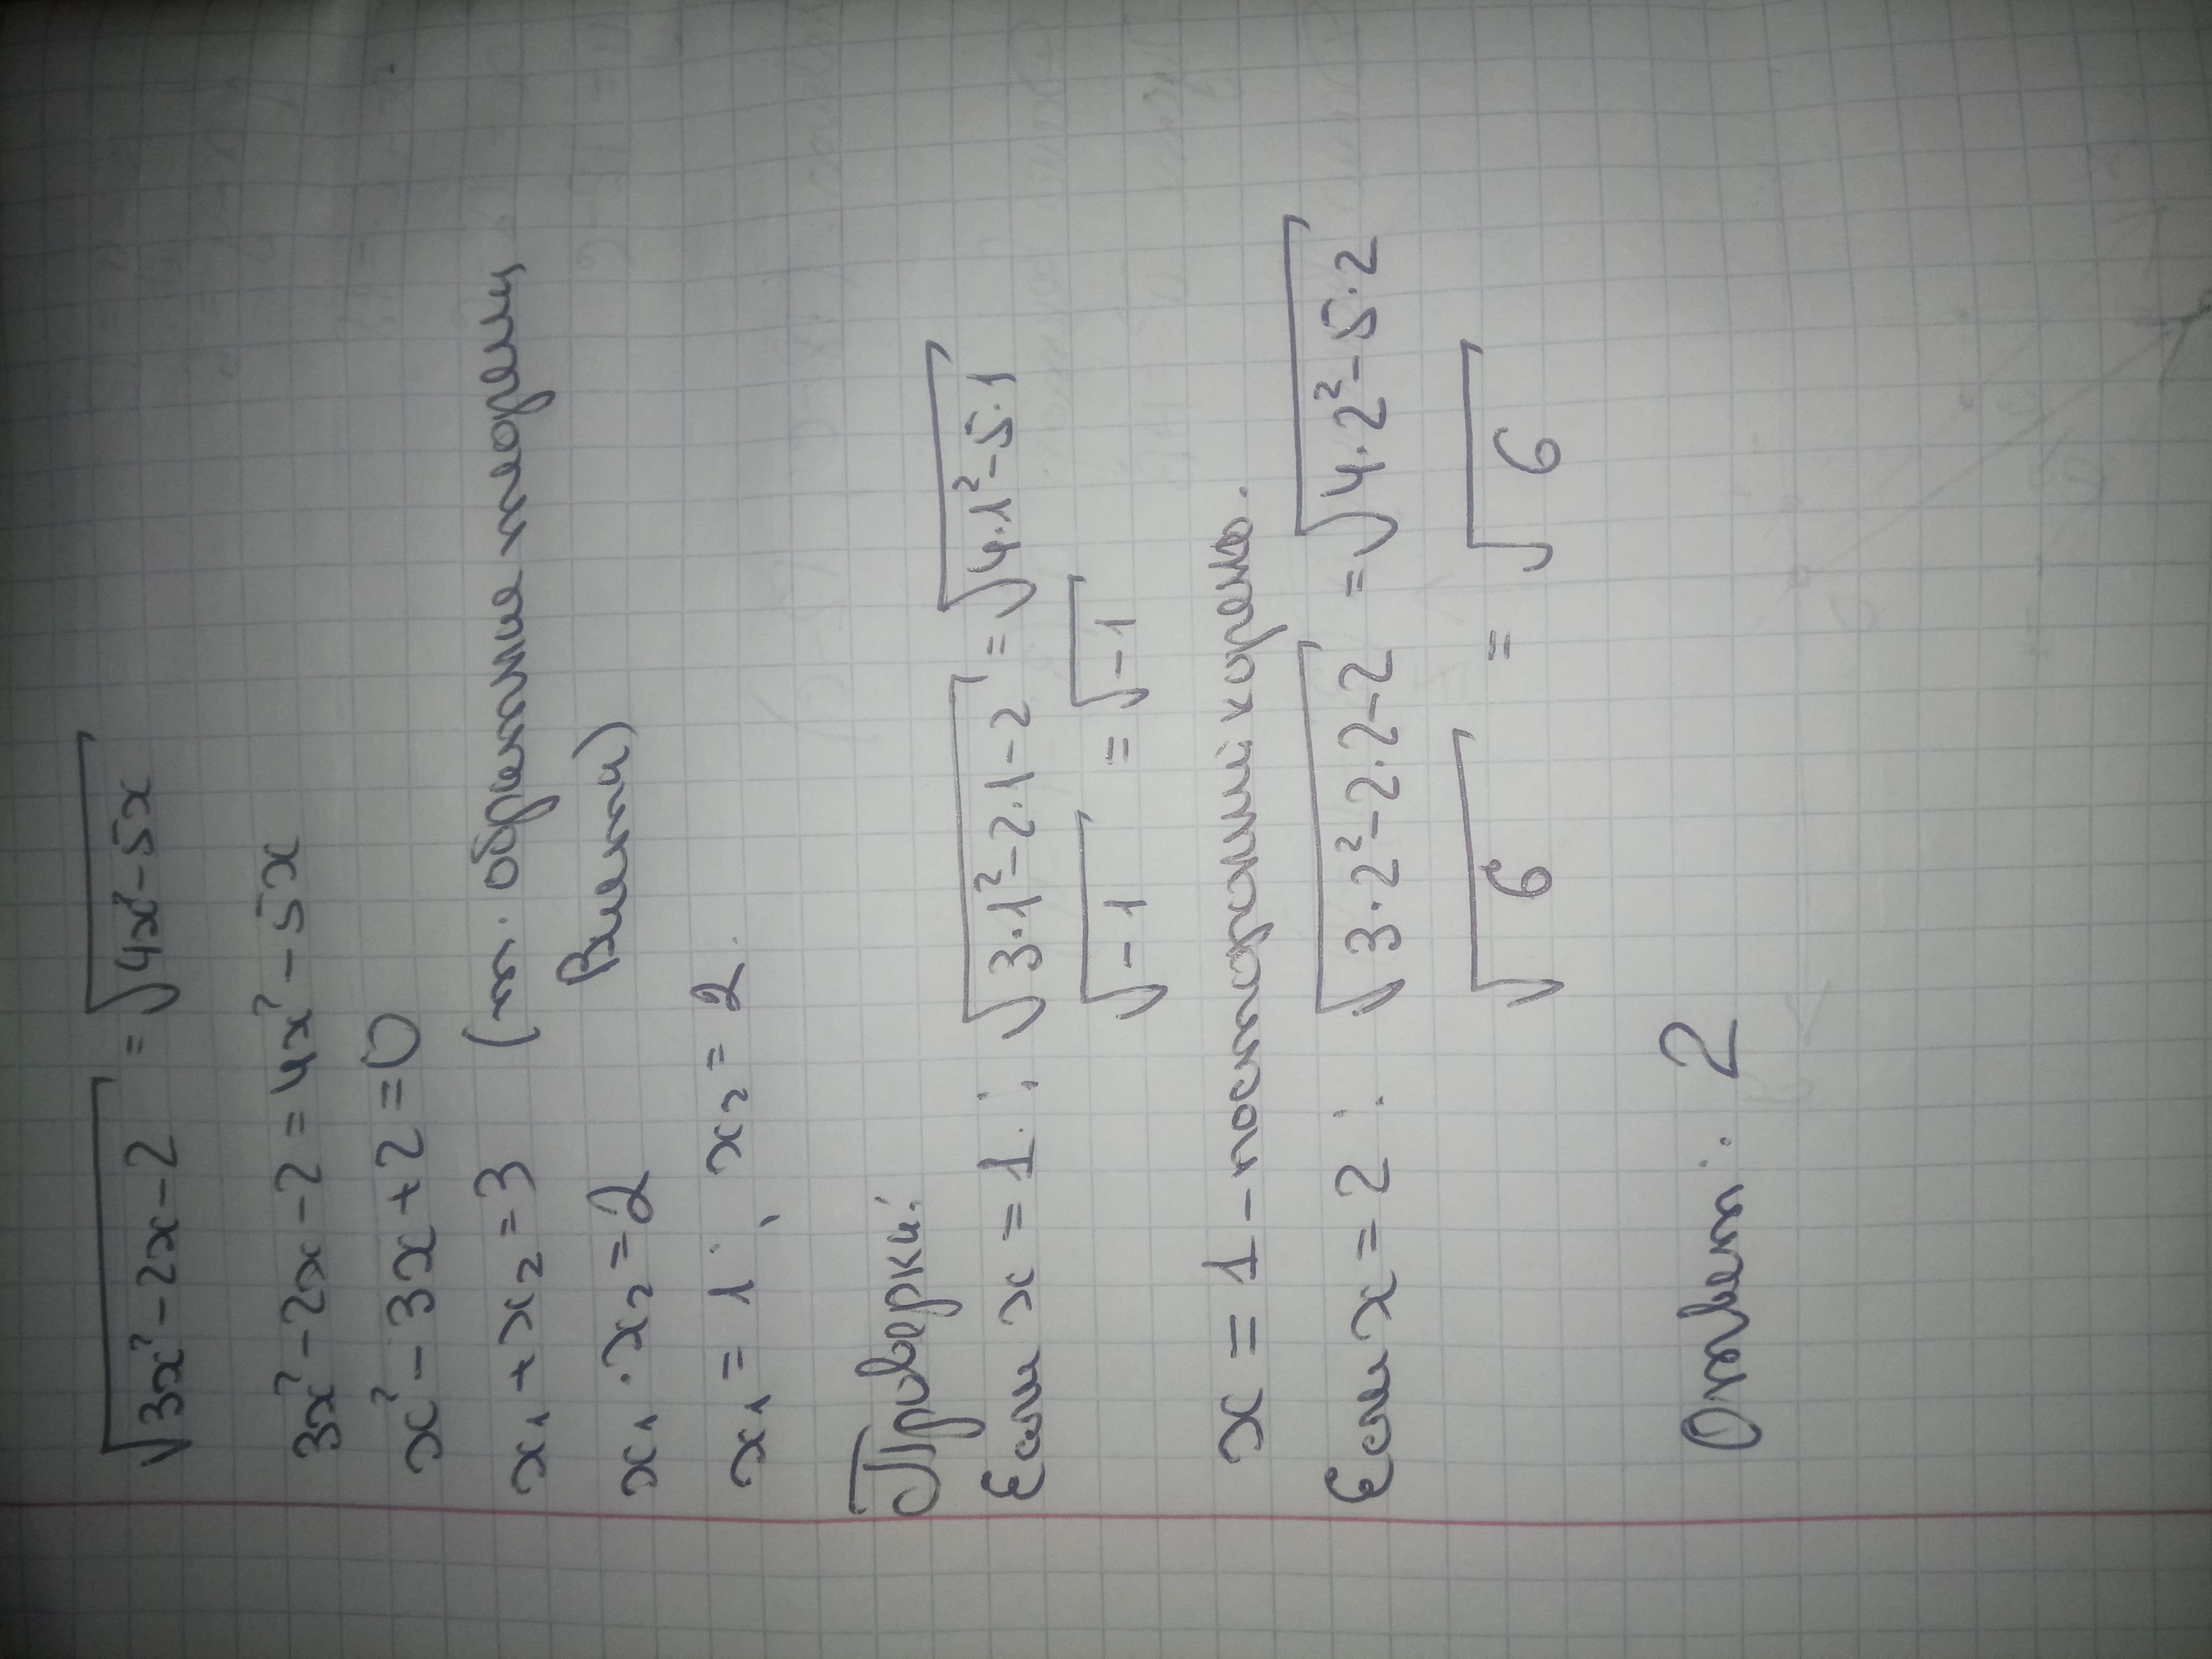 √3x²-2x-2 = √4x²-5x
3x²-2x-2=4x²-5x
x²-3x+2=0
x₁+x₂=3 (т. обратные теореми
x₁·x₂=2 Виета)
x₁=1; x₂=2.
Проверки:
Если x=1: √3·1²-2·1-2=√4·1²-5·1
√-1 = √-1
x=1-посторонний корень.
Если x=2: √3·2²-2·2-2=√4·2²-5·2
√6 = √6
Ответ: 2